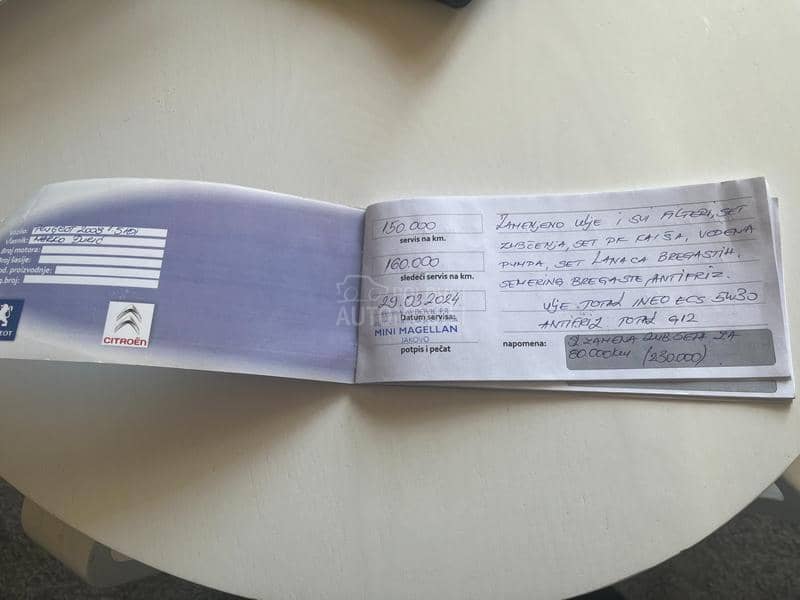 Vozilo: PEUGEOT 2008 1.5 HDI
Vlasnik: MARKO
Broj motora:
Broj šasije:
God. proizvodnje:
Reg. broj:
CITROËN
150.000
servis na km.
160.000
sledeći servis na km.
29.03.2024
Datum servisa:
MINI MAGELLAN
JAKOVO
potpis i pečat
ZAMENJENO ULJE I SVI FILTERI, SET
ZUBČENJA, SET PK KAIŠA, VODENA
PUMPA, SET LANACA BREGASTIH,
SEMERING BREGASTE, ANTIFRIZ.
ULJE TOTAL INEO ECS 5W30
ANTIFRIZ TOTAL G12
napomena:
ZAMENA ZUPČENJA ZA
80.000km (230.000)